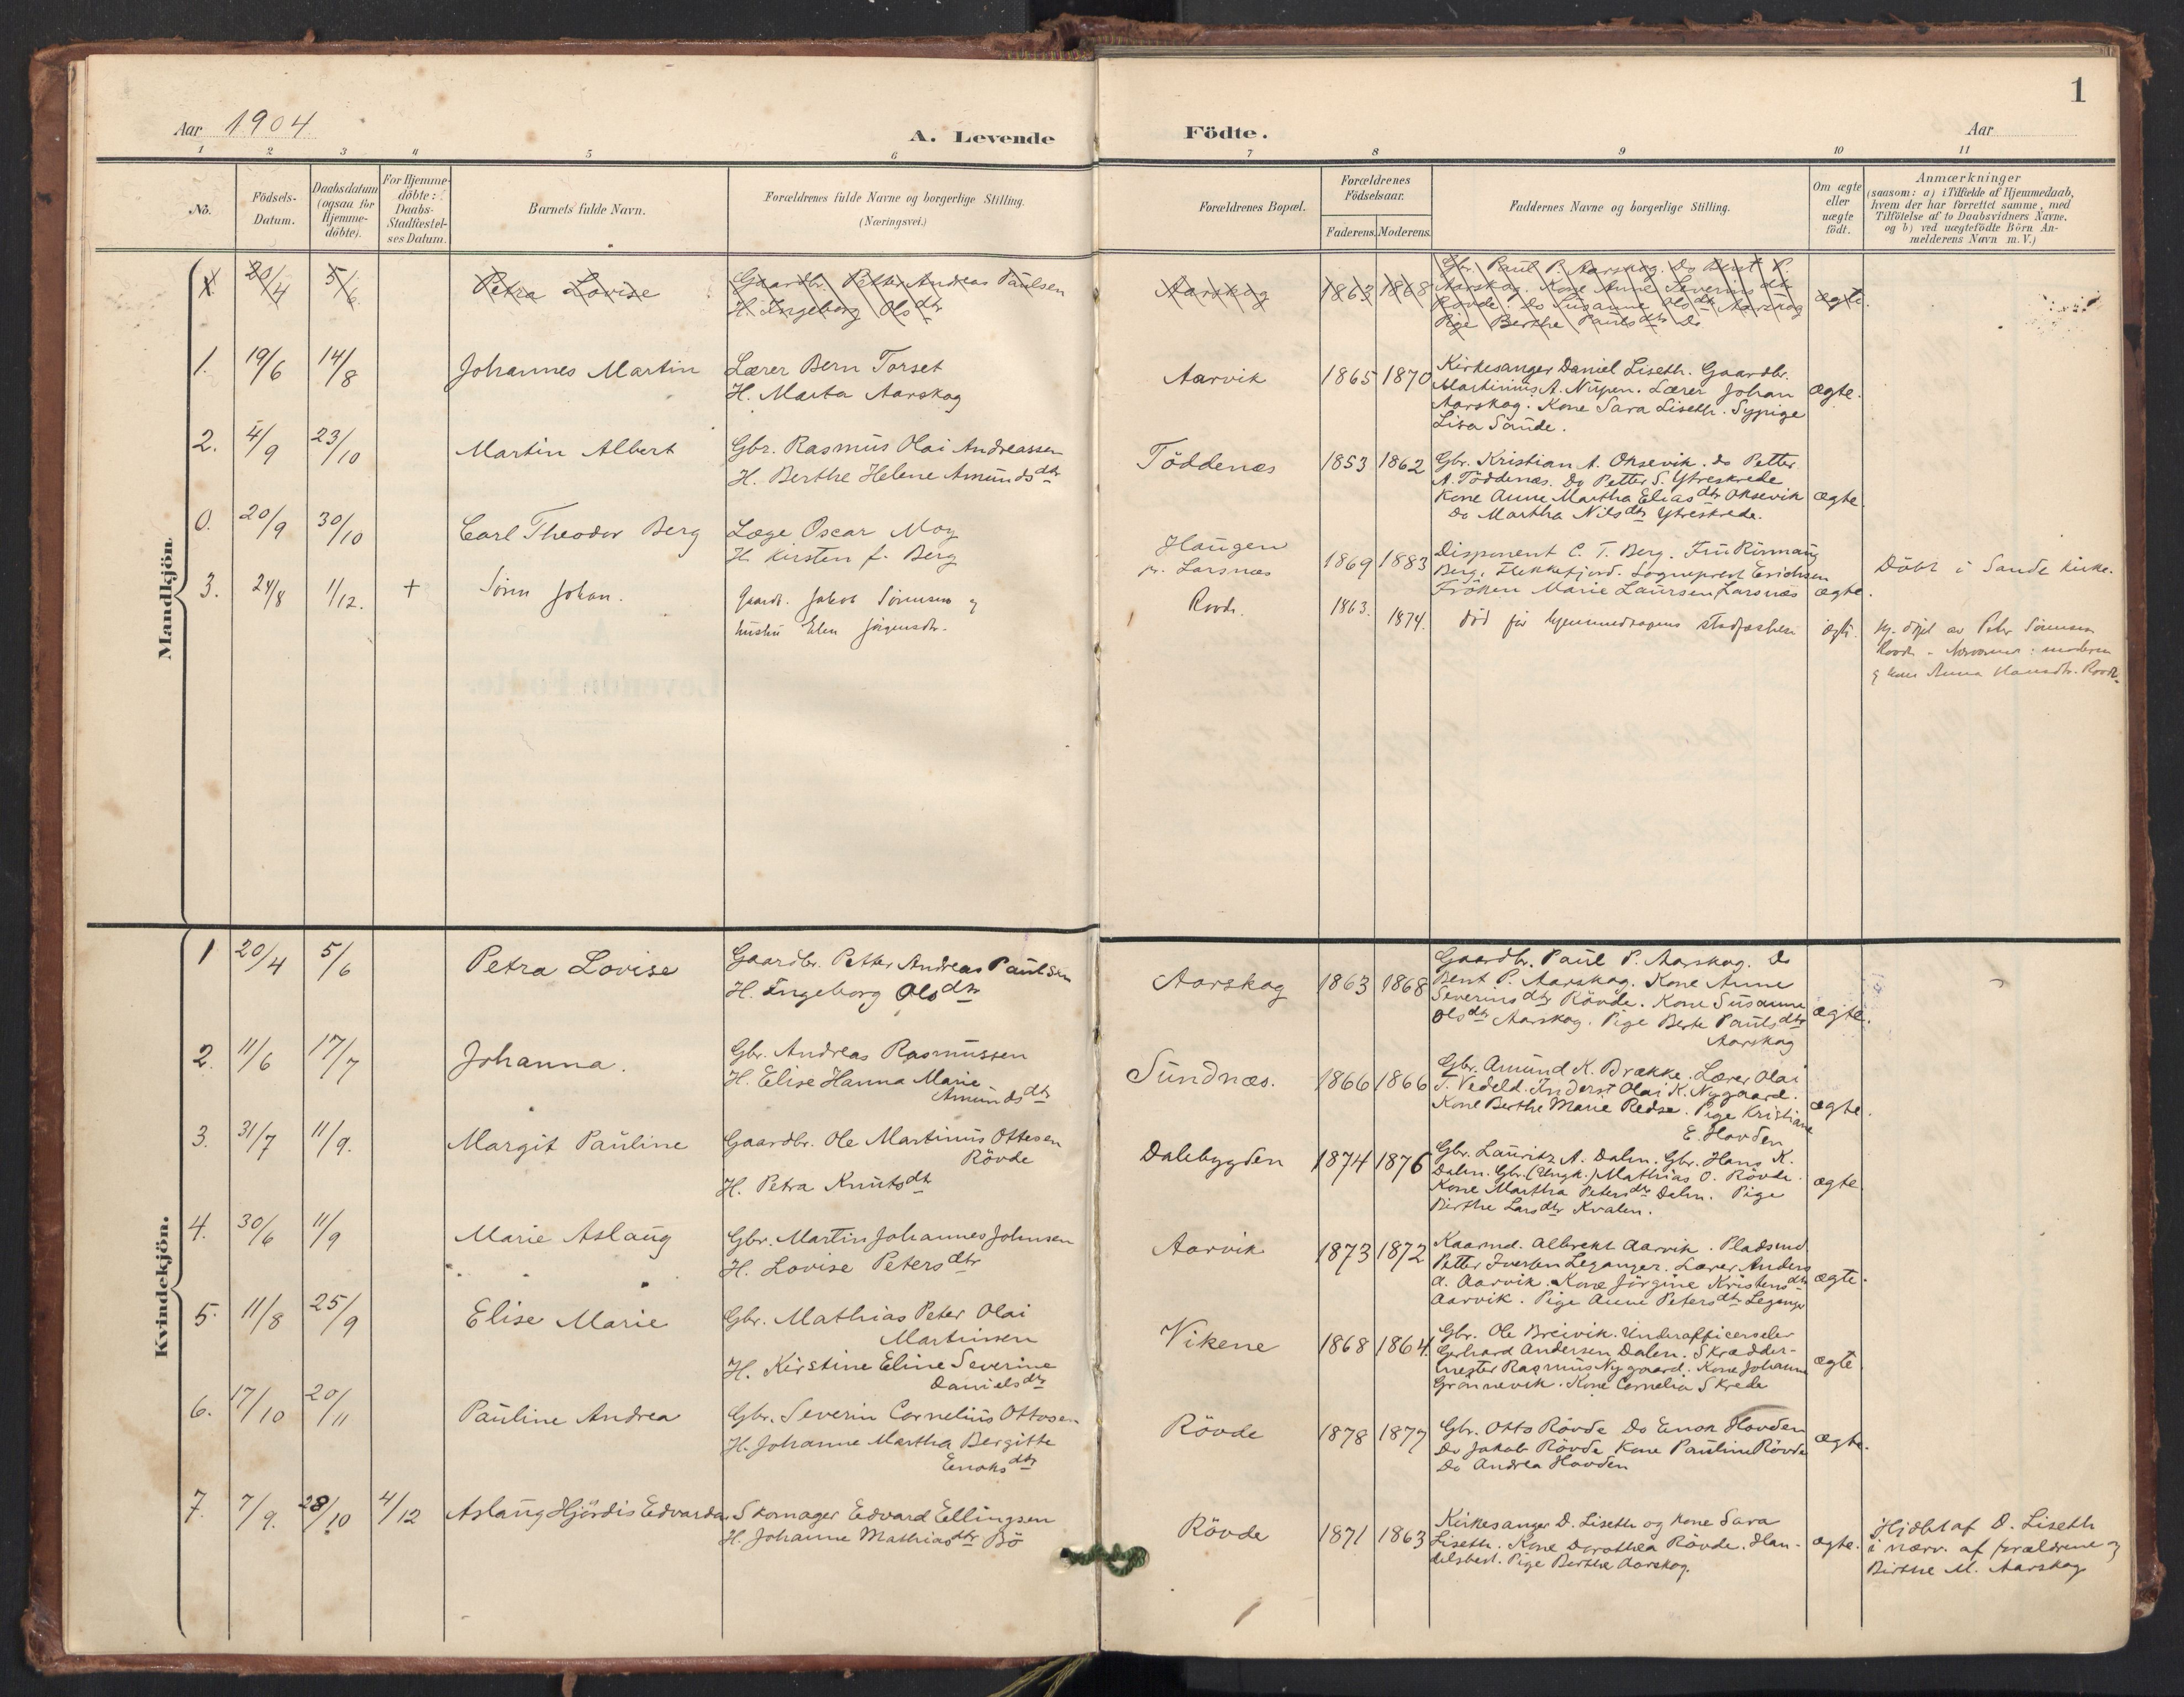 1
Aar 1904
A. Levende
Födte.
Aar
1 2 3 4 5 6 7 8 9 10 11
No.
Födsels-
Datum.
Daabsdatum
(ogsaa for
Hjemme-
döbte).
For Hjemme-
döbte:
Daabs-
Stadfæstel-
ses Datum.
Barnets fulde Navn.
Forældrenes fulde Navne og borgerlige Stilling.
(Næringsvei.)
Forældrenes Bopæl.
Forældrenes
Födselsaar.
Faderens. Moderens.
Faddernes Navne og borgerlige Stilling.
Om ægte
eller
uægte
födt.
Anmærkninger
(saasom: a) i Tilfælde af Hjemmedaab,
hvem der har forrettet samme, med
Tilföielse af to Daabsvidners Navne.
og b) ved uægtefödte Börn An-
melderens Navn m. V.)
Mandkjön
1. 20/4 5/6 Petra Lovise
Gaardbr. Petter Andreas Paulsen
H. Ingeborg Olsdtr
Aarskog 1863 1868
Gbr. Paul P. Aarskog. Do Bent P.
Aarskog. Kone Anne Severinsdtr
Rövde. Do Susanne Olsdtr Aarskog
Pige Berthe Paulsdtr Do
ægte.
1. 19/6 14/8 Johannes Martin
Lærer Bern Torset
H. Marta Aarskog
Aarvik 1865 1870
Kirkesanger Daniel Liseth. Gaardbr.
Martinius A. Nupen. Lærer Johan
Aarskog. Kone Sara Liseth. Sypige
Lisa Sande.
ægte.
2. 4/9 23/10 Martin Albert
Gbr. Rasmus Olai Andreassen
H. Berthe Helene Amundsdtr
Töddenæs 1853 1862
Gbr. Kristian A. Oksevik. do Petter
A. Töddenæs. Do Petter S. Ytreskrede
Kone Anne Martha Eliasdtr Oksevik
Do Martha Nilsdtr Ytreskrede.
ægte.
0. 20/9 30/10 Carl Theodor Berg
Læge Oscar Moy
H. Kirsten f. Berg
Haugen
pr. Larsnæs
1869 1883
Disponent C. T. Berg. Fru
Berg, Flekkefjord. Sogneprest Erichsen
Fröken Marie Laursen Larsnæs
ægte.
Döbt i Sande kirke.
3. 24/8 1/12. + Sören Johan.
Gaardb. Jakob Sörensen og
hustru Elen Jörgensdtr.
Rovde. 1863. 1874.
Död för hjemmedaapens stadfæstelse
ægte.
Hj. döpt av Peder Sörensen
Rovde - Nærværende: moderen
og kone Anna Hansdtr. Rovde.
Kvindekjön.
1 20/4 5/6 Petra Lovise
Gaardbr. Petter Andreas Paulsen
H. Ingeborg Olsdtr
Aarskog 1863 1868
Gaardbr. Paul P. Aarskog. Do
Bent P. Aarskog. Kone Anne
Severinsdtr Rövde. Kone Susanne
Olsdtr Aarskog. Pige Berte Paulsdtr
Aarskog
ægte.
2. 11/6 17/7 Johanna.
Gbr. Andreas Rasmussen
H. Elise Hanna Marie
Amundsdtr
Sundnæs. 1866 1866
Gbr. Amund K. Brække. Lærer Olai
T. Vedeld. Inderst Olai K. Nygaard.
Kone Berthe Marie Redse. Pige Kristiane
E. Hovden
ægte.
3. 31/7 11/9. Margit Pauline
Gaardbr. Ole Martinus Ottesen
Rövde
H. Petra Knutsdtr
Dalebygden 1874 1876
Gbr. Lauritz A. Dalen. Gbr. Hans K.
Dalen. Gbr. (Ungk.) Mathias O. Rövde.
Kone Martha Petersdtr Dalen. Pige
Birthe Larsdtr Kvalen.
ægte
4. 30/6 11/9 Marie Aslaug
Gbr. Martin Johannes Johnsen
H. Lovise Petersdtr
Aarvik 1873 1872
Kaarmd. Albrekt Aarvik. Pladsmd.
Petter Iversen Leganger. Lærer Anders
A. Aarvik. Kone Jörgine Kristensdtr
Aarvik. Pige Anne Petersdtr Leganger
ægte.
5. 11/8 25/9 Elise Marie
Gbr. Mathias Peter Olai
Martinsen
H. Kirstine Eline Severine
Danielsdtr
Vikene 1868 1864.
Gbr. Ole Breivik. Underofficerselev
Gerhard Andersen Dalen. Skrædder-
mester Rasmus Nygaard. Kone Johanne
Grönnevik. Kone Cornelia Skrede
ægte.
6. 17/10 20/11 Pauline Andrea
Gbr. Severin Cornelius Ottosen
H. Johanne Martha Bergitte
Enoksdtr
Rövde 1878 1877
Gbr. Otto Rövde Do Enok Hovden
Do Jakob Rövde Kone Pauline Rövde
Do Andrea Hovden
ægte.
7. 7/9. 28/10 4/12 Aslaug Hjördis Edvarda
Skomager Edvard Ellingsen
H. Johanne Mathiasdtr Bö
Rövde 1871 1863
Kirkesanger D. Liseth og Kone Sara
Liseth. Kone Dorothea Rövde. Han-
delsbest. Pige Berthe Aarskog.
ægte.
Hjdöbt af D. Liseth
i nærv. af forældrene og
Birthe M. Aarskog